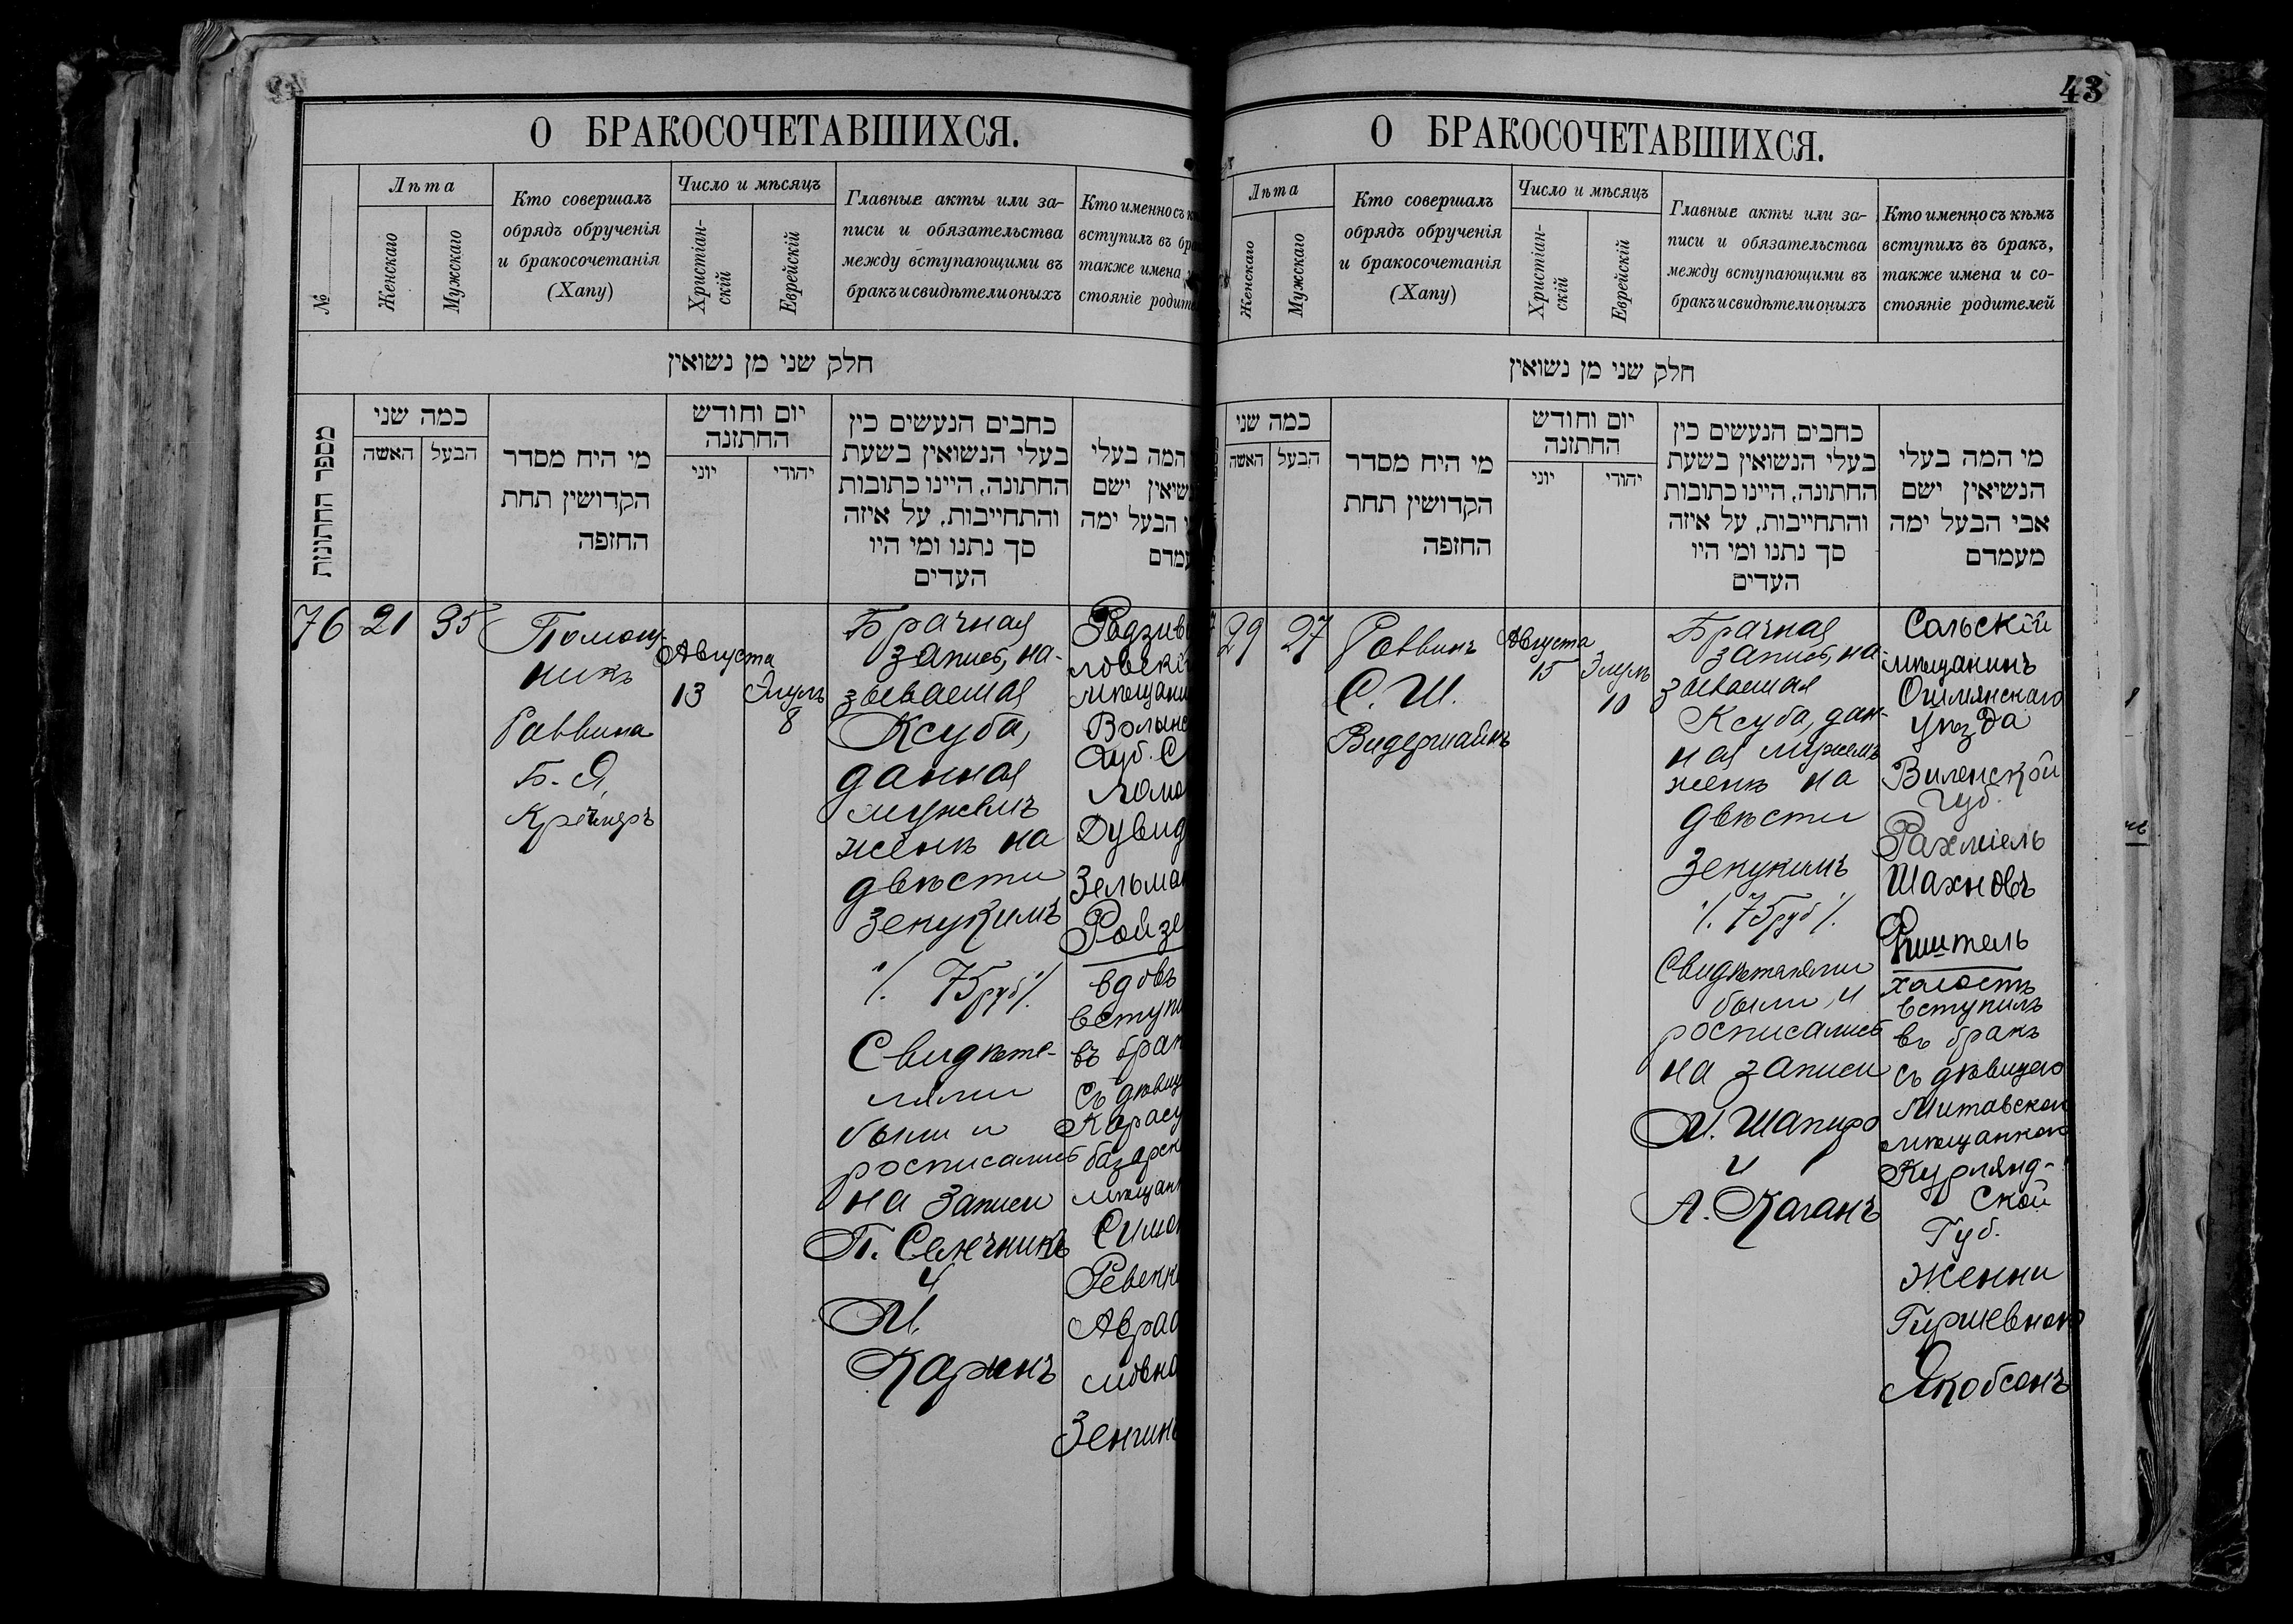 43
О БРАКОСОЧЕТАВШИХСЯ.
№
Лѣта
Женскаго
Мужскаго
Кто совершалъ
обрядъ обрученія
и бракосочетанія
(Хапу)
Число и мѣсяцъ
Христіан-
скій
Еврейскій
Главные акты или за-
писи и обязательства
между вступающими въ
бракъ и свидѣтели оныхъ
Кто именно съ
вступилъ въ
также имена
стояніе
חלק שני מן נשואין
מספר החתונות
כמה שני
האשה
הבעל
מי היח מסדר
הקדושין תחת
החופה
יום וחודש
החתונה
יוני
יהודי
כתבים הנעשים בין
בעלי הנשואין בשעת
החתונה, היינו כתובות
והתחייבות, על איזה
סך נתנו ומי היו
העדים
המה בעלי
ישם
הבעל ימה
76
21
35
Помощ-
никъ
Раввина
Б. Я.
Августа
13
Элулъ
8
Брачная
запись, на-
зываемая
Ксуба,
данная
мужемъ
женѣ на
двѣсти
Зекукимъ
"/. 75 руб /.
Свидѣте-
лями
были и
росписались
на записи
П.
и
М.
въ
съ
О БРАКОСОЧЕТАВШИХСЯ.
Лѣта
Женскаго
Мужскаго
Кто совершалъ
обрядъ обрученія
и бракосочетанія
(Хапу)
Число и мѣсяцъ
Христіан-
скій
Еврейскій
Главные акты или за-
писи и обязательства
между вступающими въ
бракъ и свидѣтели оныхъ
Кто именно съ кѣмъ
вступилъ въ бракъ,
также имена и со-
стояніе родителей
חלק שני מן נשואין
כמה שני
האשה
הבעל
מי היח מסדר
הקדושין תחת
החופה
יום וחודש
החתונה
יוני
יהודי
כתבים הנעשים בין
בעלי הנשואין בשעת
החתונה, היינו כתובות
והתחייבות, על איזה
סך נתנו ומי היו
העדים
מי המה בעלי
הנשיאין ישם
אבי הבעל ימה
מעמדם
29
27
Раввинъ
С. Ш.
Видершайнъ
Августа
15
Элулъ
10
Брачная
запись, на-
зываемая
Ксуба, дан-
ная мужемъ
женѣ на
двѣсти
Зекукимъ
"/. 75 руб /.
Свидѣтелями
были и
росписались
на записи
М. Шапиро
и
А. Каганъ
Сольскій
мѣщанинъ
Ошмянскаго
уѣзда
Виленской
губ.
Рахміель
Шахновъ
холостъ
вступилъ
въ бракъ
съ дѣвицею
Митавскою
мѣщанкою
Курлянд-
ской
Губ.
Женни
Гиршевною
Якобсонъ